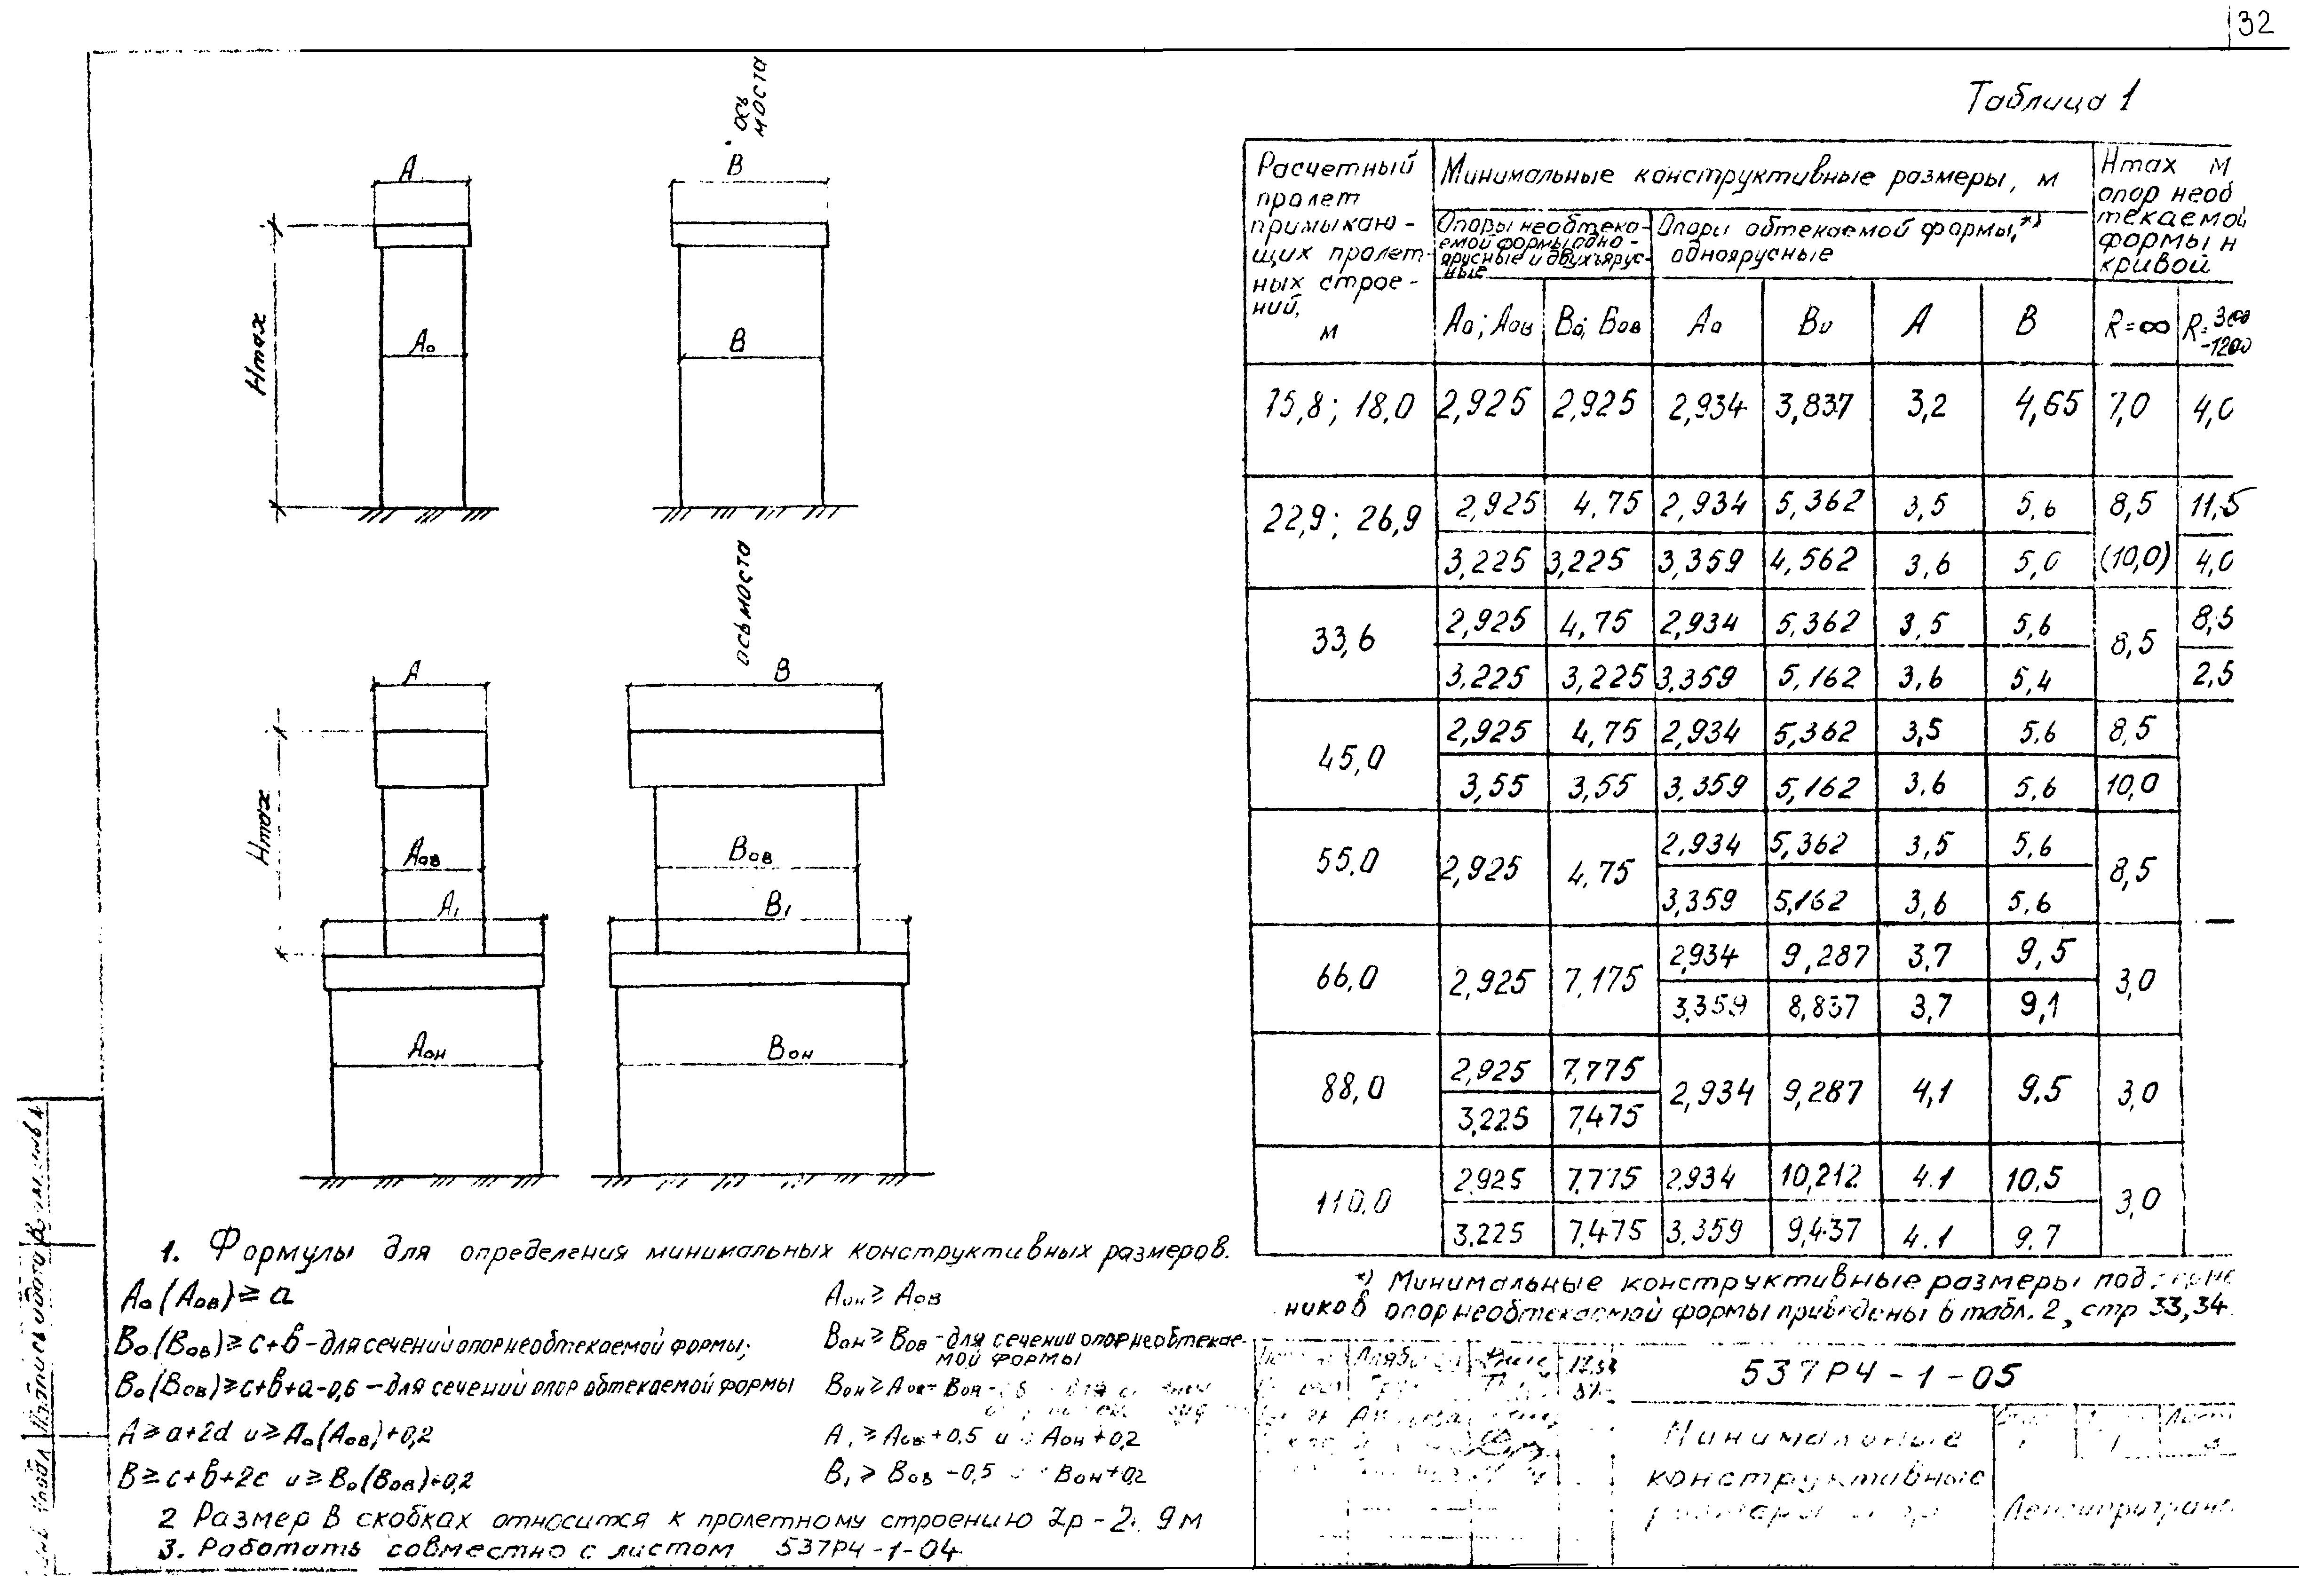 32
Таблица 1
ось
моста
A
B
Hmax
A₀
B
ось моста
A
B
Hmax
Aов
Bов
A₁
B₁
Aон
Bон
Расчетный
пролет
примыкаю-
щих пролет-
ных строе-
ний,
м
Минимальные конструктивные размеры, м
Hmax м
опор необ
текаемой
формы н
кривой
Опоры необтека-
емой формы одно-
ярусные и двухъярус-
ные
Опоры обтекаемой формы,*)
одноярусные
A₀; Aов B₀; Bов A₀ B₀ A B R=∞ R=300
-1200
15,8; 18,0 2,925 2,925 2,934 3,837 3,2 4,65 7,0 4,0
22,9; 26,9 2,925 4,75 2,934 5,362 3,5 5,6 8,5 11,5
3,225 3,225 3,359 4,562 3,6 5,0 (10,0) 4,0
33,6 2,925 4,75 2,934 5,362 3,5 5,6 8,5 8,5
3,225 3,225 3,359 5,162 3,6 5,4 2,5
45,0 2,925 4,75 2,934 5,362 3,5 5,6 8,5
3,55 3,55 3,359 5,162 3,6 5,6 10,0
55,0 2,925 4,75 2,934 5,362 3,5 5,6 8,5
3,359 5,162 3,6 5,6
66,0 2,925 7,175 2,934 9,287 3,7 9,5 3,0
3,359 8,837 3,7 9,1
88,0 2,925 7,775 2,934 9,287 4,1 9,5 3,0
3,225 7,475
110,0 2,925 7,775 2,934 10,212 4.1 10,5 3,0
3.225 7,475 3,359 9,437 4.1 9.7
*) Минимальные конструктивные размеры под
ников опор необтекаемой формы приведены в табл. 2, стр 33,34
1. Формулы для определения минимальных конструктивных размеров.
A₀(Aов)≥a
Aон≥Aов
B₀(Bов)≥c+b-для сечений опор необтекаемой формы;
Bон≥Bов-для сечении опор необтекае-
мой формы
B₀(Bов)≥c+b+a-0,6-для сечений опор обтекаемой формы
Bон≥Aон
A≥a+2d и≥A₀(Aов)+0,2
A₁≥Aов+0.5 и Aон+0,2
B≥c+b+2e и≥B₀(Bов)+0,2
B₁≥Bов-0,5 Bон+0,2
2 Размер в скобках относится к пролетному строению 9м
3. Работать совместно с листом 537РЧ-1-04
537РЧ-1-05
Минимальные
конструктивные
размеры
Ленгипротранс